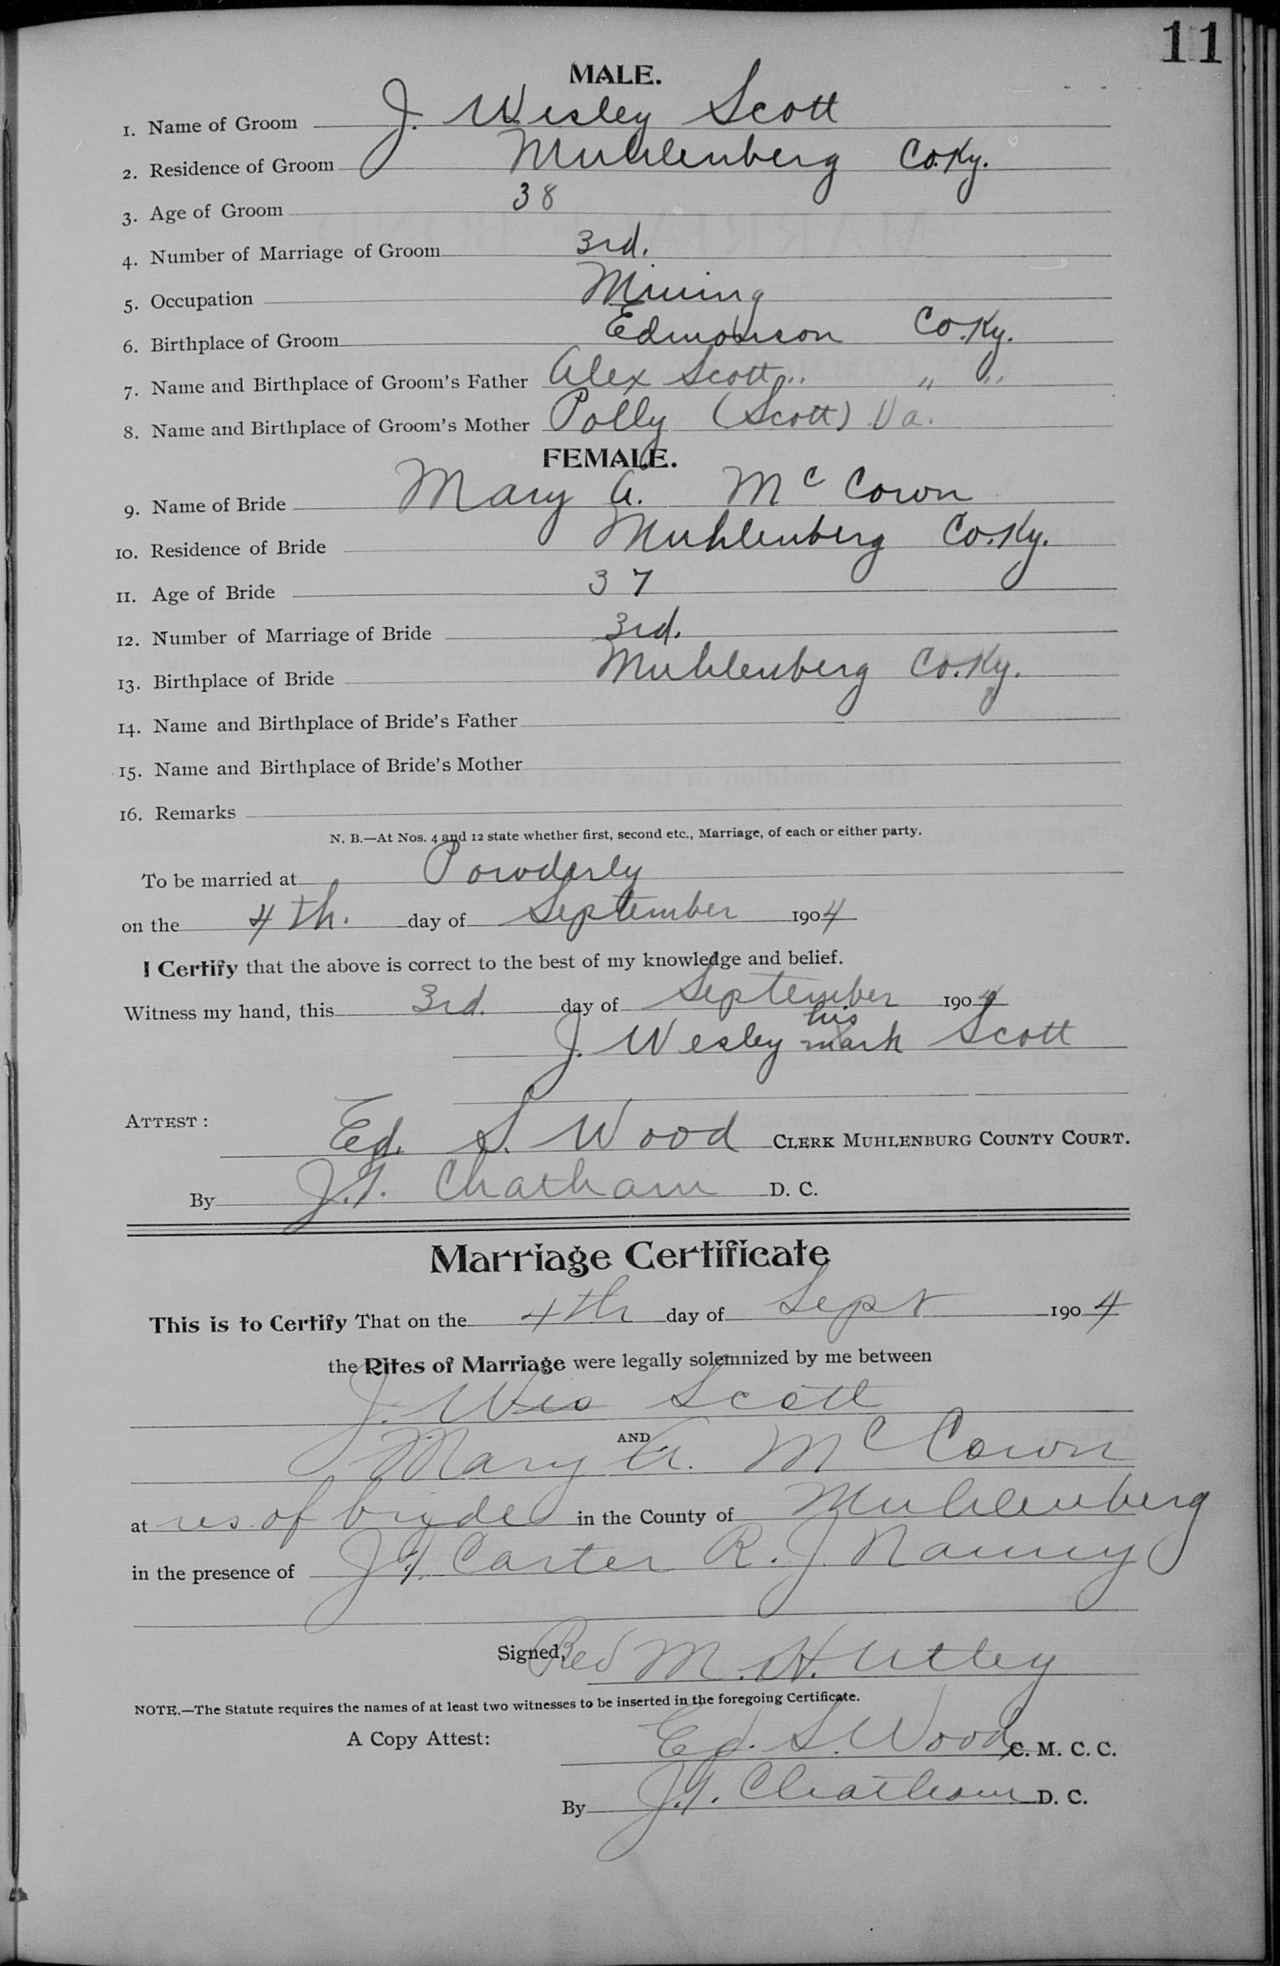 11
MALE.
1. Name of Groom J. Wesley Scott
2. Residence of Groom Muhlenberg Co. Ky.
3. Age of Groom 38
4. Number of Marriage of Groom 3rd.
5. Occupation Mining
6. Birthplace of Groom Edmonson Co. Ky.
7. Name and Birthplace of Groom's Father Alex Scott " " "
8. Name and Birthplace of Groom's Mother Polly (Scott) Va.
FEMALE.
9. Name of Bride Mary A. McCown
10. Residence of Bride Muhlenberg Co. Ky.
11. Age of Bride 37
12. Number of Marriage of Bride 3rd.
13. Birthplace of Bride Muhlenberg Co. Ky.
14. Name and Birthplace of Bride's Father
15. Name and Birthplace of Bride's Mother
16. Remarks
N. B.—At Nos. 4 and 12 state whether first, second etc., Marriage, of each or either party.
To be married at Powderly
on the 4th. day of September 1904
I Certify that the above is correct to the best of my knowledge and belief.
Witness my hand, this 3rd. day of September 1904
his
J. Wesley mark Scott
ATTEST:
Ed. S. Wood CLERK MUHLENBURG COUNTY COURT.
By J.T. Chatham D. C.
Marriage Certificate
This is to Certify That on the 4th day of Sept 1904
the Rites of Marriage were legally solemnized by me between
J. Wes Scott
AND
Mary A. McCown
at res. of bryde in the County of Muhlenberg
in the presence of J.T. Carter R. J. Nanny
Signed, Rev M. H. Utley
NOTE.—The Statute requires the names of at least two witnesses to be inserted in the foregoing Certificate.
A Copy Attest: Ed. S. Wood C. M. C. C.
By J.T. Chatham D. C.